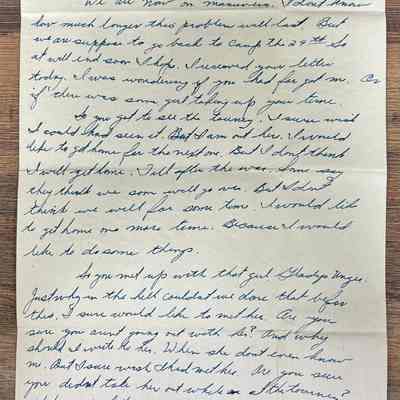 We are now on maneuvers. I don't know
how much longer this problem will last. But
we are suppose to go back to camp the 29th So
it will end soon I hope. I received your letter
today. I was wondering if you had forgot me. Or
if there was some girl taking up your time.
So you got to see the tourney. I sure wish
I could had seen it. But I am out here. I would
like to get home for the next one. But I don't think
I will get home. Till after the war. Some say
they think we soon will go over. But I don't
think we will for some time. I would like
to get home one more time. Because I would
like to do some things.
So you met up with that girl Gladys Unger.
Just why in the hell couldnt we done that before
this. I sure would like to met her. Are you
sure you aint going out with her? And why
should I write to her. When she dont even know
me. But I sure wish I had met her. Are you sure
you didnt take her out while at the tournee?